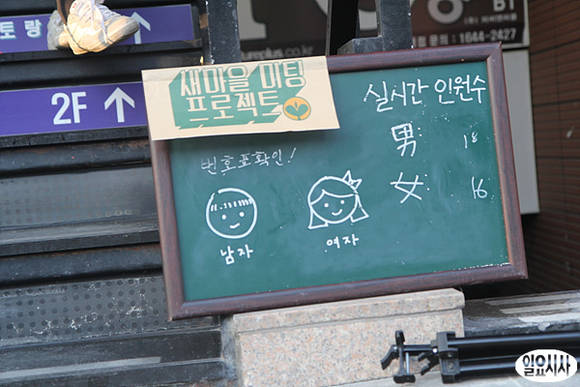 토랑
2F ↑
B1
문의 : 1644-2427
새마을 미팅
프로젝트
실시간 인원수
男: 18
女: 16
번호표확인!
남자
여자
일요시사